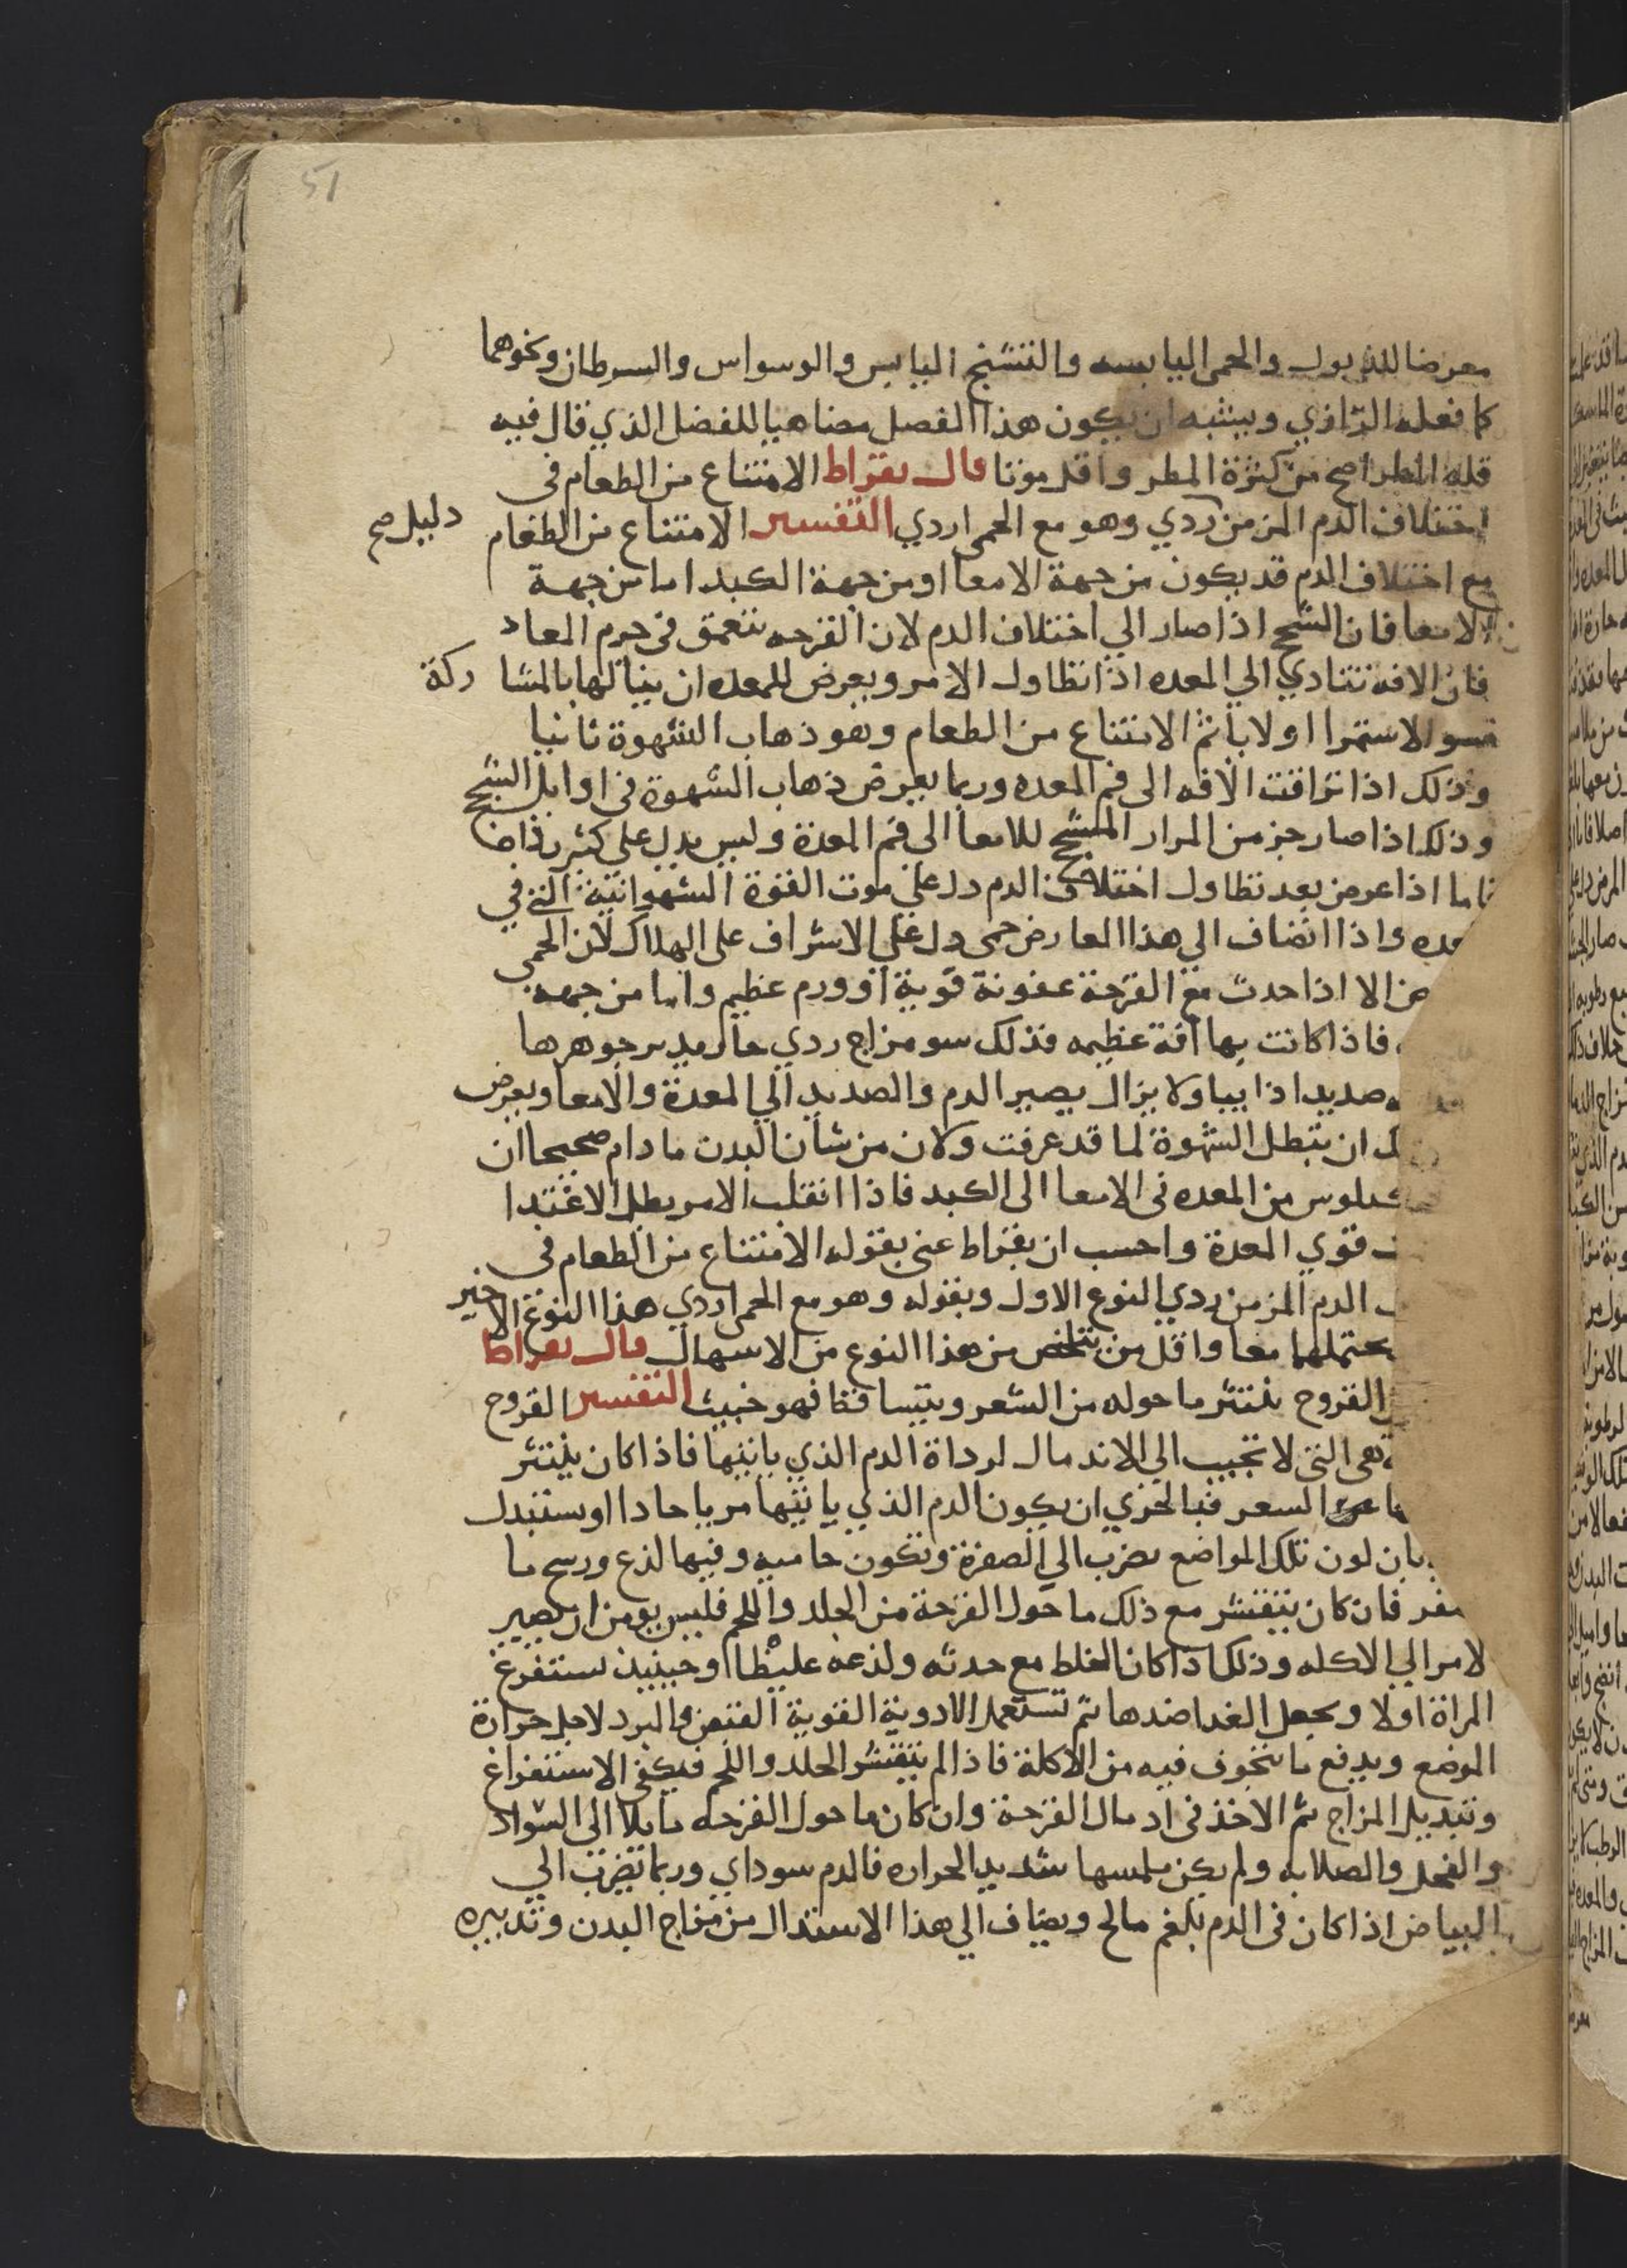 51
معرضا للذبول والحمى اليابسه والتشنج اليابس والوسواس والسرطان ونحوهما
كما فعله الرازي ويشبه ان يكون هذا الفصل مضاهيا للفصل الذي قال فيه
قله المطر اصح من كثرة المطر واقل موتا قال بقراط الامتناع من الطعام في
اختلاف الدم المزمن ردي وهو مع الحمى اردي التفسير الامتناع من الطعام دليل صح
مع اختلاف الدم قد يكون من جهة الامعا او من جهة الكبد اما من جهة
الامعا فان السحج اذا صار الي اختلاف الدم لان القرحه تتعمق في جرم المعاد
فان الافه تتادي الي المعده اذا تطاول الامر ويعرض للمعده ان ينالها بالمشا ركة
سو الاستمرا اولا ثم الامتناع من الطعام وهو ذهاب الشهوة ثانيا
وذلك اذا تراقت الافه الى فم المعده وربما يعرض ذهاب الشهوة في اوايل السحج
وذلك اذا صار جز من المرار المسحج للامعا الى فم المعدة وليس يدل علي كثير
فاما اذا عرض بعد تطاول اختلاف الدم دل علي موت القوة الشهوانية التي في
عده واذا انضاف الي هذا العارض حمى دل علي الاشراف على الهلاك لان الحمي
ض الا اذا حدث مع القرحة عفونة قوية او ورم عظيم واما من جهه
فاذا كانت بها افة عظيمه فذلك سو مزاج ردي حار جوهرها
صديدا ذايبا ولا يزال يصير الدم والصديد الي المعدة والامعا ويعرض
ك ان تبطل الشهوة لما قد عرفت ولان من شان البدن ما دام صحيحا ان
كيلوس من المعده في الامعا الى الكبد فاذا انقلب الامر بطل الاغتدا
قوي المعدة واحسب ان بقراط عنى بقوله الامتناع من الطعام في
الدم المزمن ردي النوع الاول وبقوله وهو مع الحمى اردي هذا النوع الاخير
يحتملهما معا واقل من تخلص من هذا النوع من الاسهال قال بقراط
القروح ينتثر ما حوله من الشعر ويتساقط فهو خبيث التفسير القروح
هى التي لا تجيب الي الاندمال لرداة الدم الذي ياتيها فاذا كان ينتثر
الشعر فبالحري ان يكون الدم الذي ياتيها مريا حادا او يستدل
بان لون تلك المواضع يضرب الي الصفرة وتكون حاميه وفيها لذع ورسح ما
صفر فان كان يتقشر مع ذلك ما حول القرحة من الجلد واللحم فليس يومن ان يصير
لامر الي الاكله وذلك اذا كان الخلط مع حدته ولذعه غليظا وحينيذ يستفرغ
المراة اولا ويجعل الغدا ضدها ثم تستعمل الادوية القوية القبض والبرد لاجل حرارة
الموضع ويدفع ما يتخوف فيه من الاكلة فاذا لم يتقشر الجلد واللحم فيكفى الاستفراغ
وتبديل المزاج ثم الاخذ في ادمال القرحة وان كان ما حول القرحه مايلا الى السواد
والقحل والصلابه ولم يكن ملمسها شديد الحراره فالدم سوداي وربما تضرب الي
البياض اذا كان في الدم بلغم مالح ويضاف الي هذا الاستدال من مزاج البدن وتدبيره